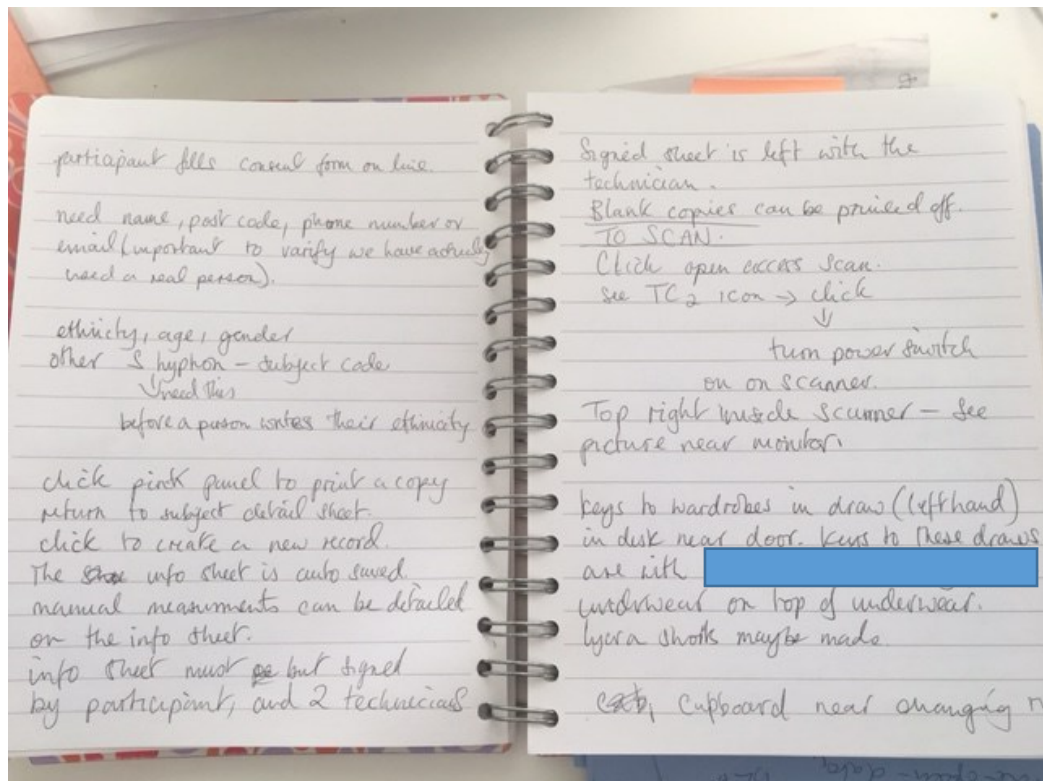 participant fills consent form on line.
need name, post code, phone number or
email (important to varify we have actually
used a real person).
ethnicty, age, gender
other S hyphon - subject code
need this
before a person writes their ethinicity
click pink panel to print a copy
return to subject detail sheet.
click to create a new record.
The info sheet is auto saved.
manual measurments can be detailed
on the info sheet.
info sheet must but signed
by participant, and 2 technicians
Signed sheet is left with the
technician.
Blank copies can be prined off.
TO SCAN.
Click open access scan.
see TC2 icon → click
↓
turn power switch
on on scanner.
Top right inside scanner - see
picture near monitor.
keys to wardrobes in draw (lefthand)
in disk near door. keys to these draws
are with
underwear on top of underwear.
lycra shorts maybe made.
Cupboard near changing